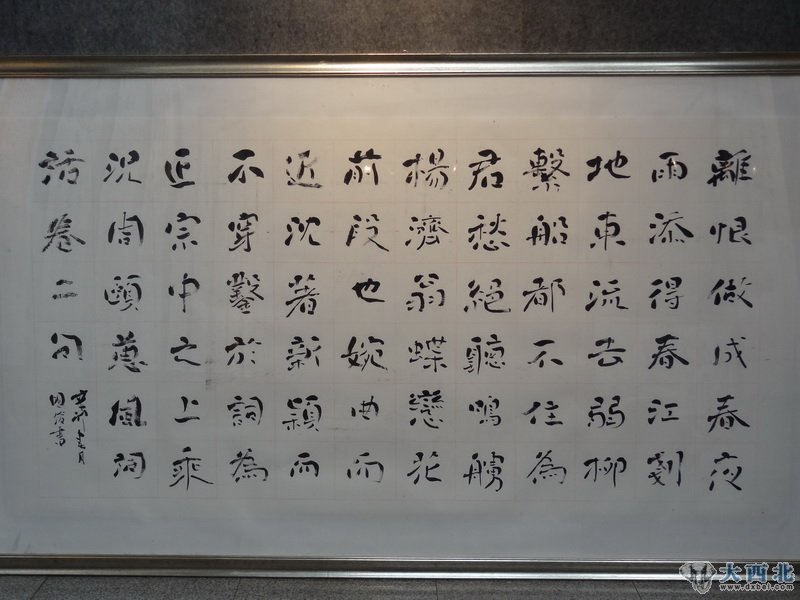 離恨做成春夜
雨添得春江剗
地東流去弱柳
繫船都不住為
君愁絕聽鳴艣
楊濟翁蝶戀花
前段也婉曲而
近沈著新穎而
不穿鑿於詞為
正宗中之上乘
況周頤蕙風詞
話卷二句
月
書
大西北
www.dxbei.com